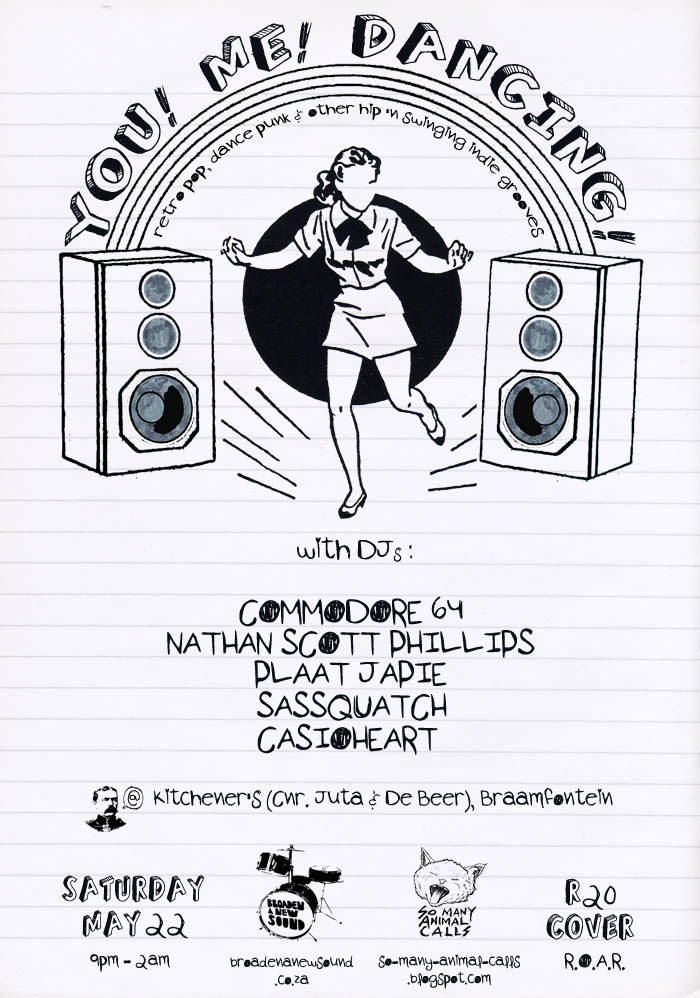 YOU! ME! DANCING!
retro pop, dance punk & other hip 'n swinging indie grooves
with DJs:
COMMODORE 64
NATHAN SCOTT PHILLIPS
PLAAT JAPIE
SASSQUATCH
CASIOHEART
@ Kitchener's (Cnr. Juta & De Beer), Braamfontein
SATURDAY
MAY 22
9pm - 2am
BROADEN
A NEW
SOUND
broadenanewsound
.co.za
SO MANY
ANIMAL
CALLS
so-many-animal-calls
.blogspot.com
R20
COVER
R.O.A.R.